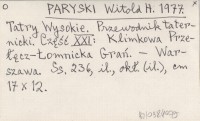 PARYSKI Witold H. 1977
Tatry Wysokie. Przewodnik tater-
nicki. Część XXI: Klimkowa Prze-
łęcz-Łomnicka Grań. - War-
szawa. S3, 236, il., okł. (il.), cm
17 x 12.